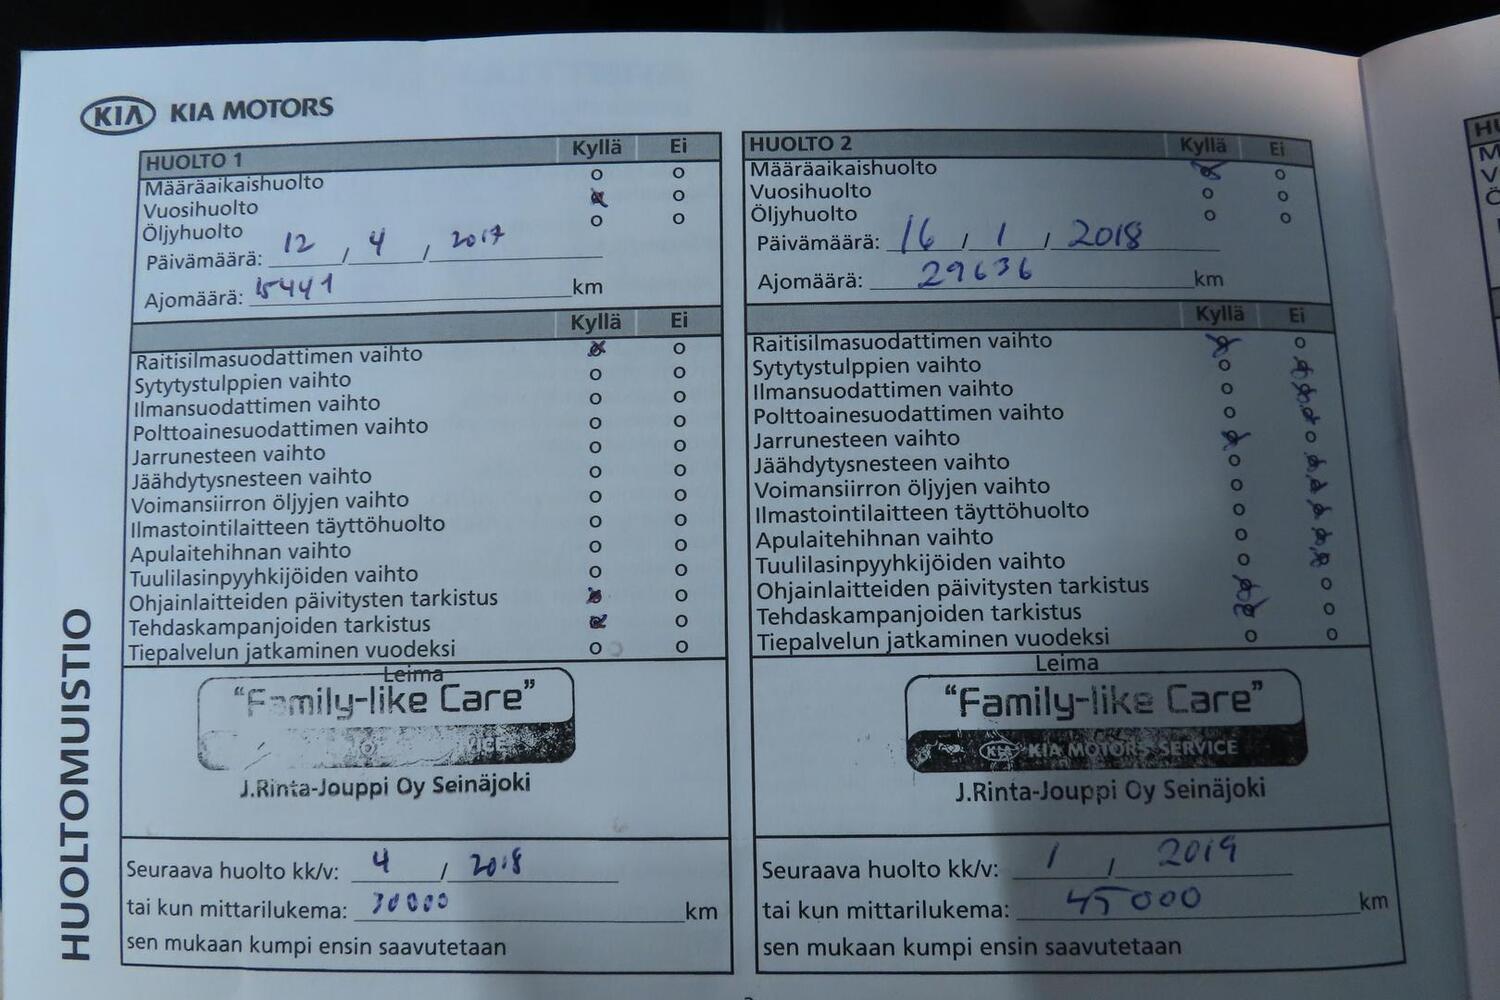 KIA KIA MOTORS
HUOLTO 1 Kyllä Ei
Määräaikaishuolto o o
Vuosihuolto o
Öljyhuolto o o
Päivämäärä: 12 / 4 / 2017
Ajomäärä: 15441 km
Kyllä Ei
Raitisilmasuodattimen vaihto o
Sytytystulppien vaihto o o
Ilmansuodattimen vaihto o o
Polttoainesuodattimen vaihto o o
Jarrunesteen vaihto o o
Jäähdytysnesteen vaihto o o
Voimansiirron öljyjen vaihto o o
Ilmastointilaitteen täyttöhuolto o o
Apulaitehihnan vaihto o o
Tuulilasinpyyhkijöiden vaihto o o
Ohjainlaitteiden päivitysten tarkistus o
Tehdaskampanjoiden tarkistus o
Tiepalvelun jatkaminen vuodeksi o o
Leima
“Family-like Care”
J.Rinta-Jouppi Oy Seinäjoki
Seuraava huolto kk/v: 4 / 2018
tai kun mittarilukema: 30000 km
sen mukaan kumpi ensin saavutetaan
HUOLTO 2 Kyllä Ei
Määräaikaishuolto o
Vuosihuolto o o
Öljyhuolto o o
Päivämäärä: 16 / 1 / 2018
Ajomäärä: 29636 km
Kyllä Ei
Raitisilmasuodattimen vaihto o
Sytytystulppien vaihto o
Ilmansuodattimen vaihto o
Polttoainesuodattimen vaihto o
Jarrunesteen vaihto o
Jäähdytysnesteen vaihto o
Voimansiirron öljyjen vaihto o
Ilmastointilaitteen täyttöhuolto o
Apulaitehihnan vaihto o
Tuulilasinpyyhkijöiden vaihto o
Ohjainlaitteiden päivitysten tarkistus o
Tehdaskampanjoiden tarkistus o
Tiepalvelun jatkaminen vuodeksi o o
Leima
“Family-like Care”
KIA KIA MOTORS SERVICE
J.Rinta-Jouppi Oy Seinäjoki
Seuraava huolto kk/v: 1 / 2019
tai kun mittarilukema: 45000 km
sen mukaan kumpi ensin saavutetaan
HUOLTOMUISTIO